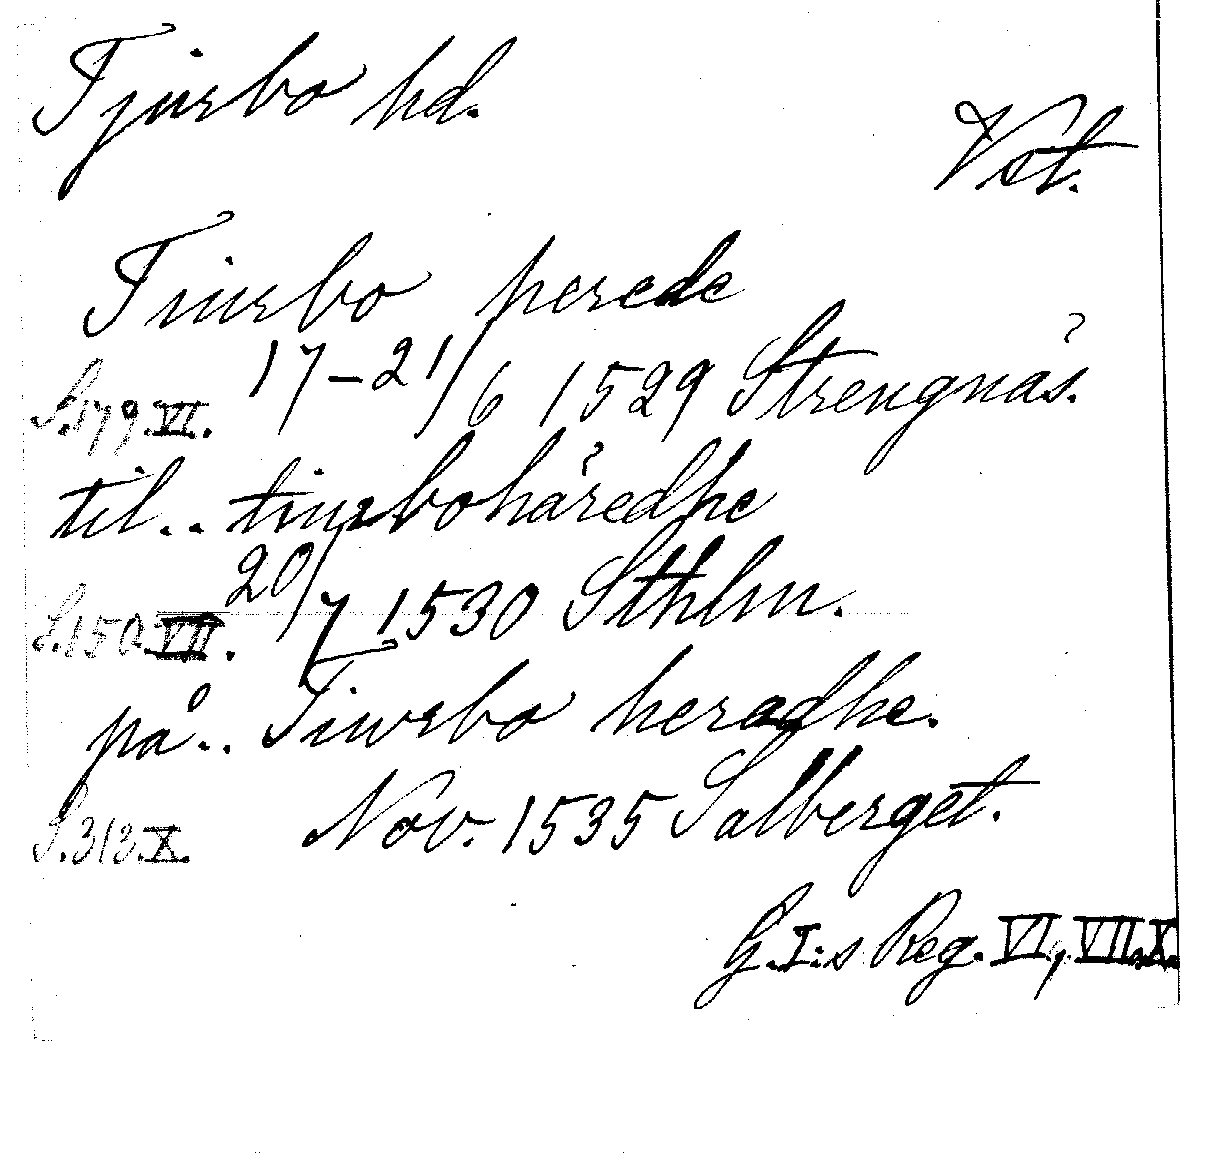 Tjurbo hd.
Vst.
Tiurbo herede
S. 179 VI. 17-21/6 1529 Strengnäs.
til.. tiurbohäredhe
S. 150 VII. 20/7 1530 Sthlm.
på.. Tiwrbo heradhe.
S. 313 X. Nov. 1535 Salberget.
G.I:s Reg. VI, VII, X.